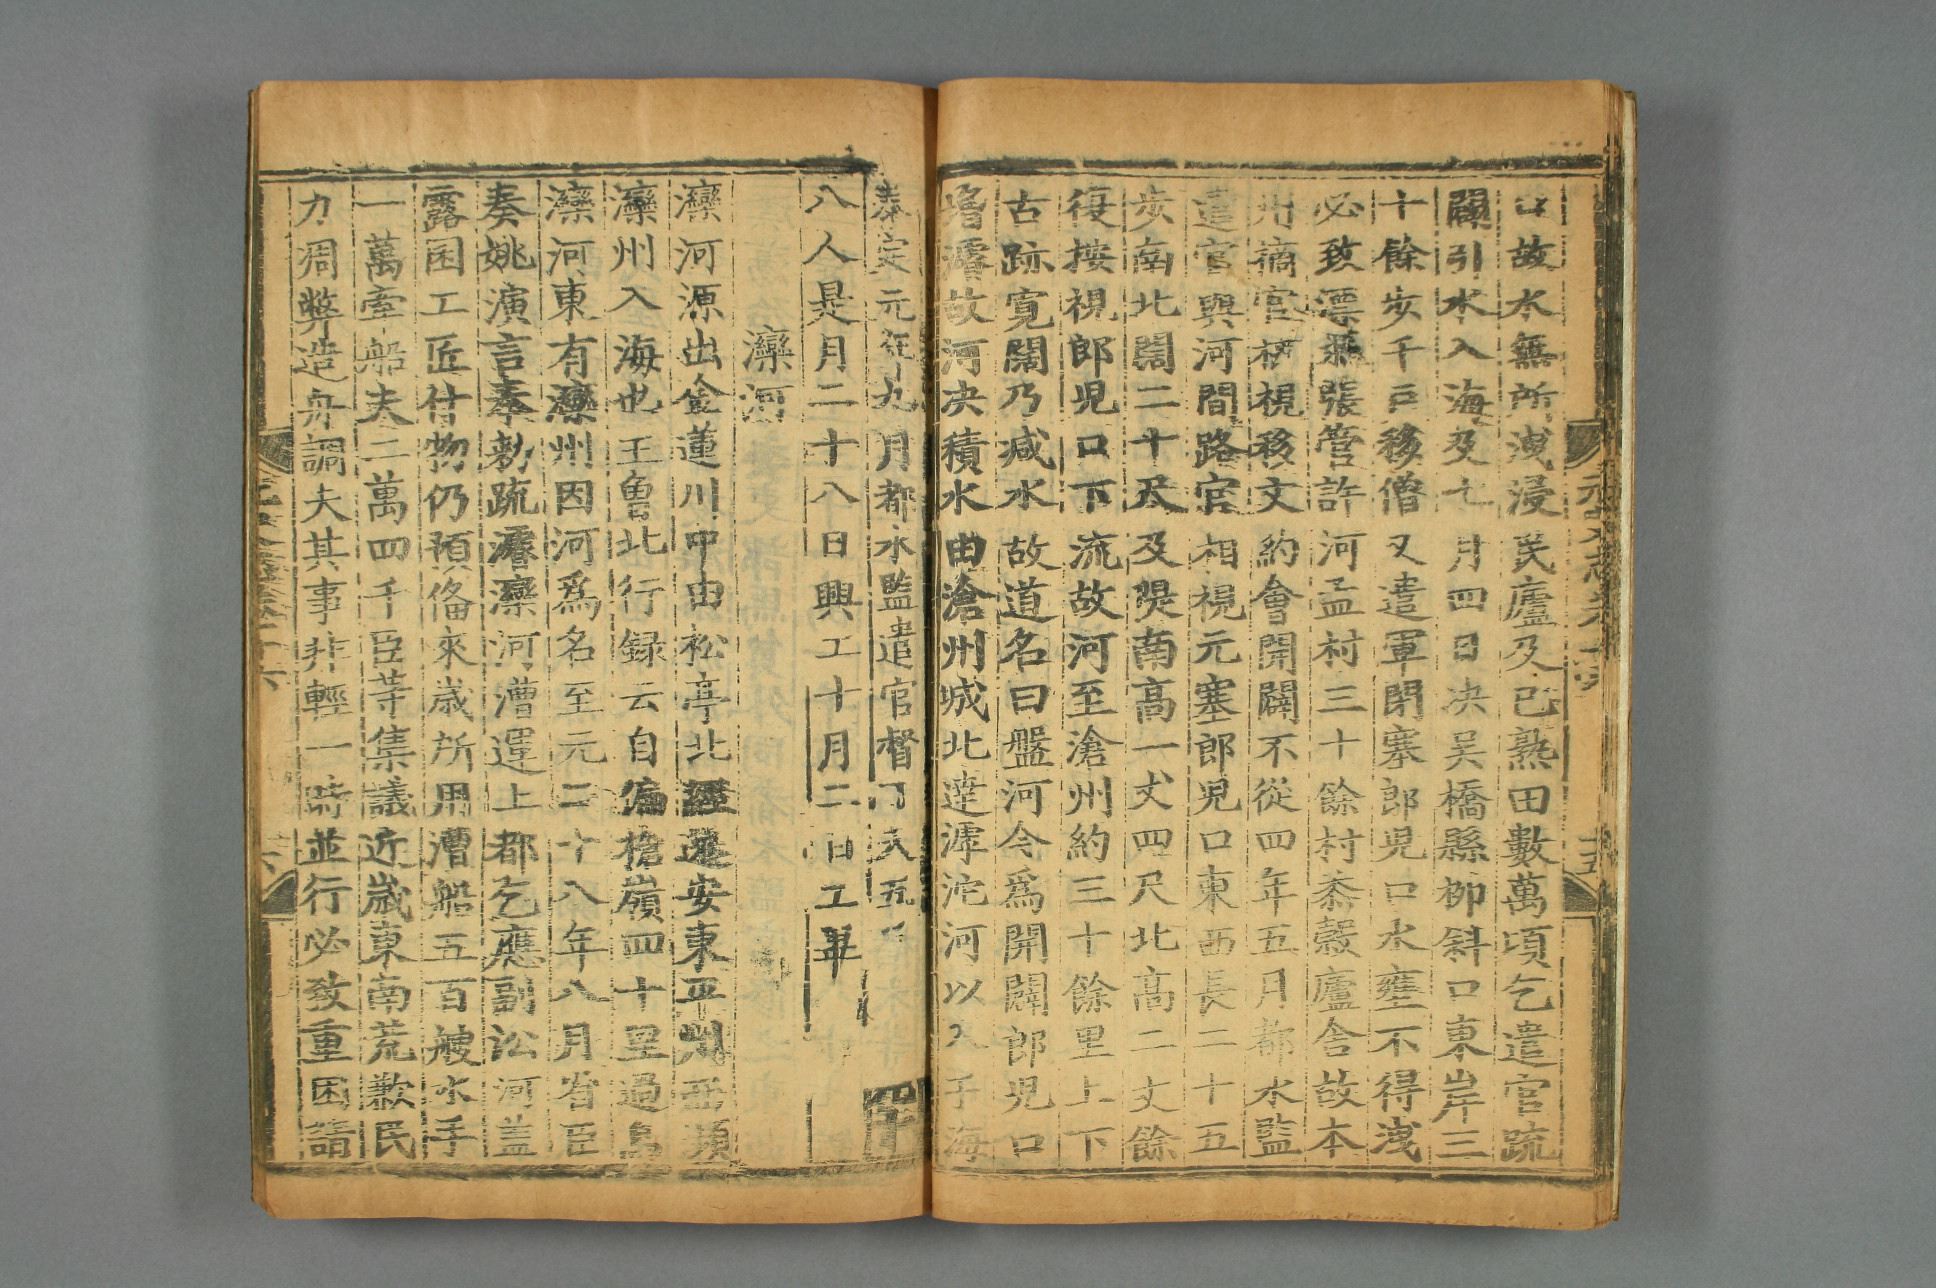 口故水無所洩浸民廬及已熟田數萬頃乞遣官疏
闢引水入海及七月四日决吴橋縣柳斜口東岸三
十餘步千戸移僧又遣軍閉塞郎兒口水壅不得洩
必致漂張管許河孟村三十餘村黍穀廬舍故本
州摘官相視移文約會開闢不從四年五月都水監
遣官與河間路官相視元塞郎兒口東西長二十五
步南北闊二十尺及堤南高一丈四尺北高二丈餘
復按視郎兒口下流故河至滄州約三十餘里上下
古跡寛闊乃减水故道名曰盤河今為開闢郎兒口
增濬故河决積水由滄州城北達滹沱河以入于海
泰定元年九月都水監遣官督丁夫五
八人是月二十八日興工十月二日工畢
灤河
灤河源出金蓮川中由松亭北經遷安東平州西瀕
灤州入海也王曾北行録云自偏槍嶺四十里過烏
灤河東有灤州因河爲名至元二十八年八月省臣
奏姚演言奉勑疏濬灤河漕運上都乞應副㳂河盖
露囷工匠什物仍預俻來歳所用漕船五百艘水手
一萬牽船夫二萬四千臣等集議近歲東南荒歉民
力凋弊造舟調夫其事非輕一時並行必致重困請